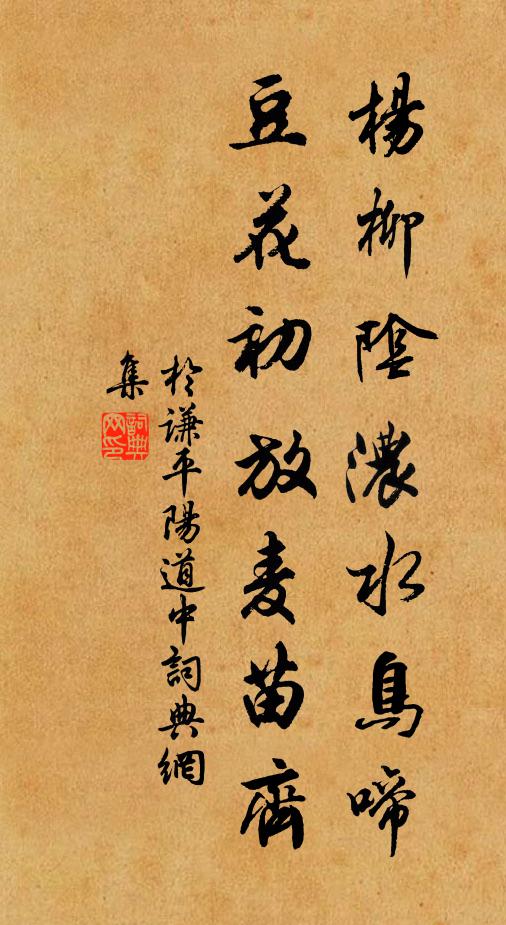 楊柳陰濃水鳥啼
豆花初放麦苗齊
於謙平陽道中詞典網
集
詞典
网印